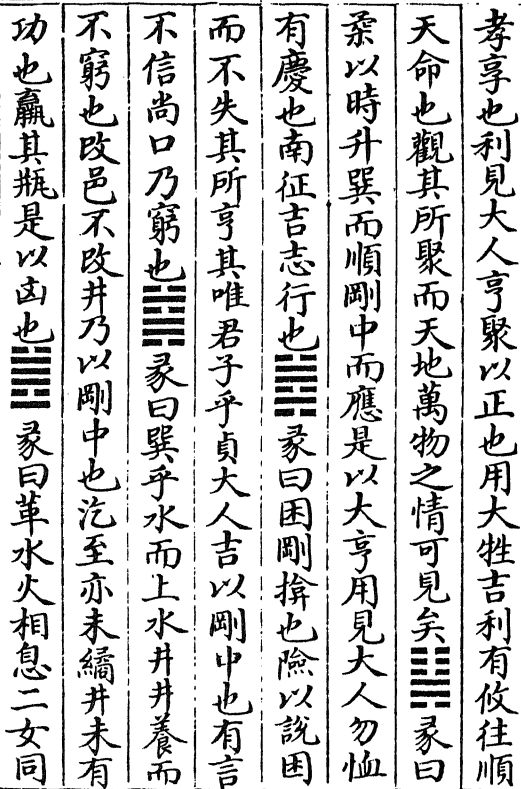 孝享也利見大人亨聚以正也用大牲吉利有攸往順
天命也觀其所聚而天地萬物之情可見矣䷭彖曰
柔以時升巽而順剛中而應是以大亨用見大人勿恤
有慶也南征吉志行也䷮彖曰困剛揜也險以說困
而不失其所亨其唯君子乎貞大人吉以剛中也有言
不信尚口乃窮也䷯彖曰巽乎水而上水井井養而
不窮也改邑不改井乃以剛中也汔至亦未繘井未有
功也羸其瓶是以凶也䷰彖曰革水火相息二女同